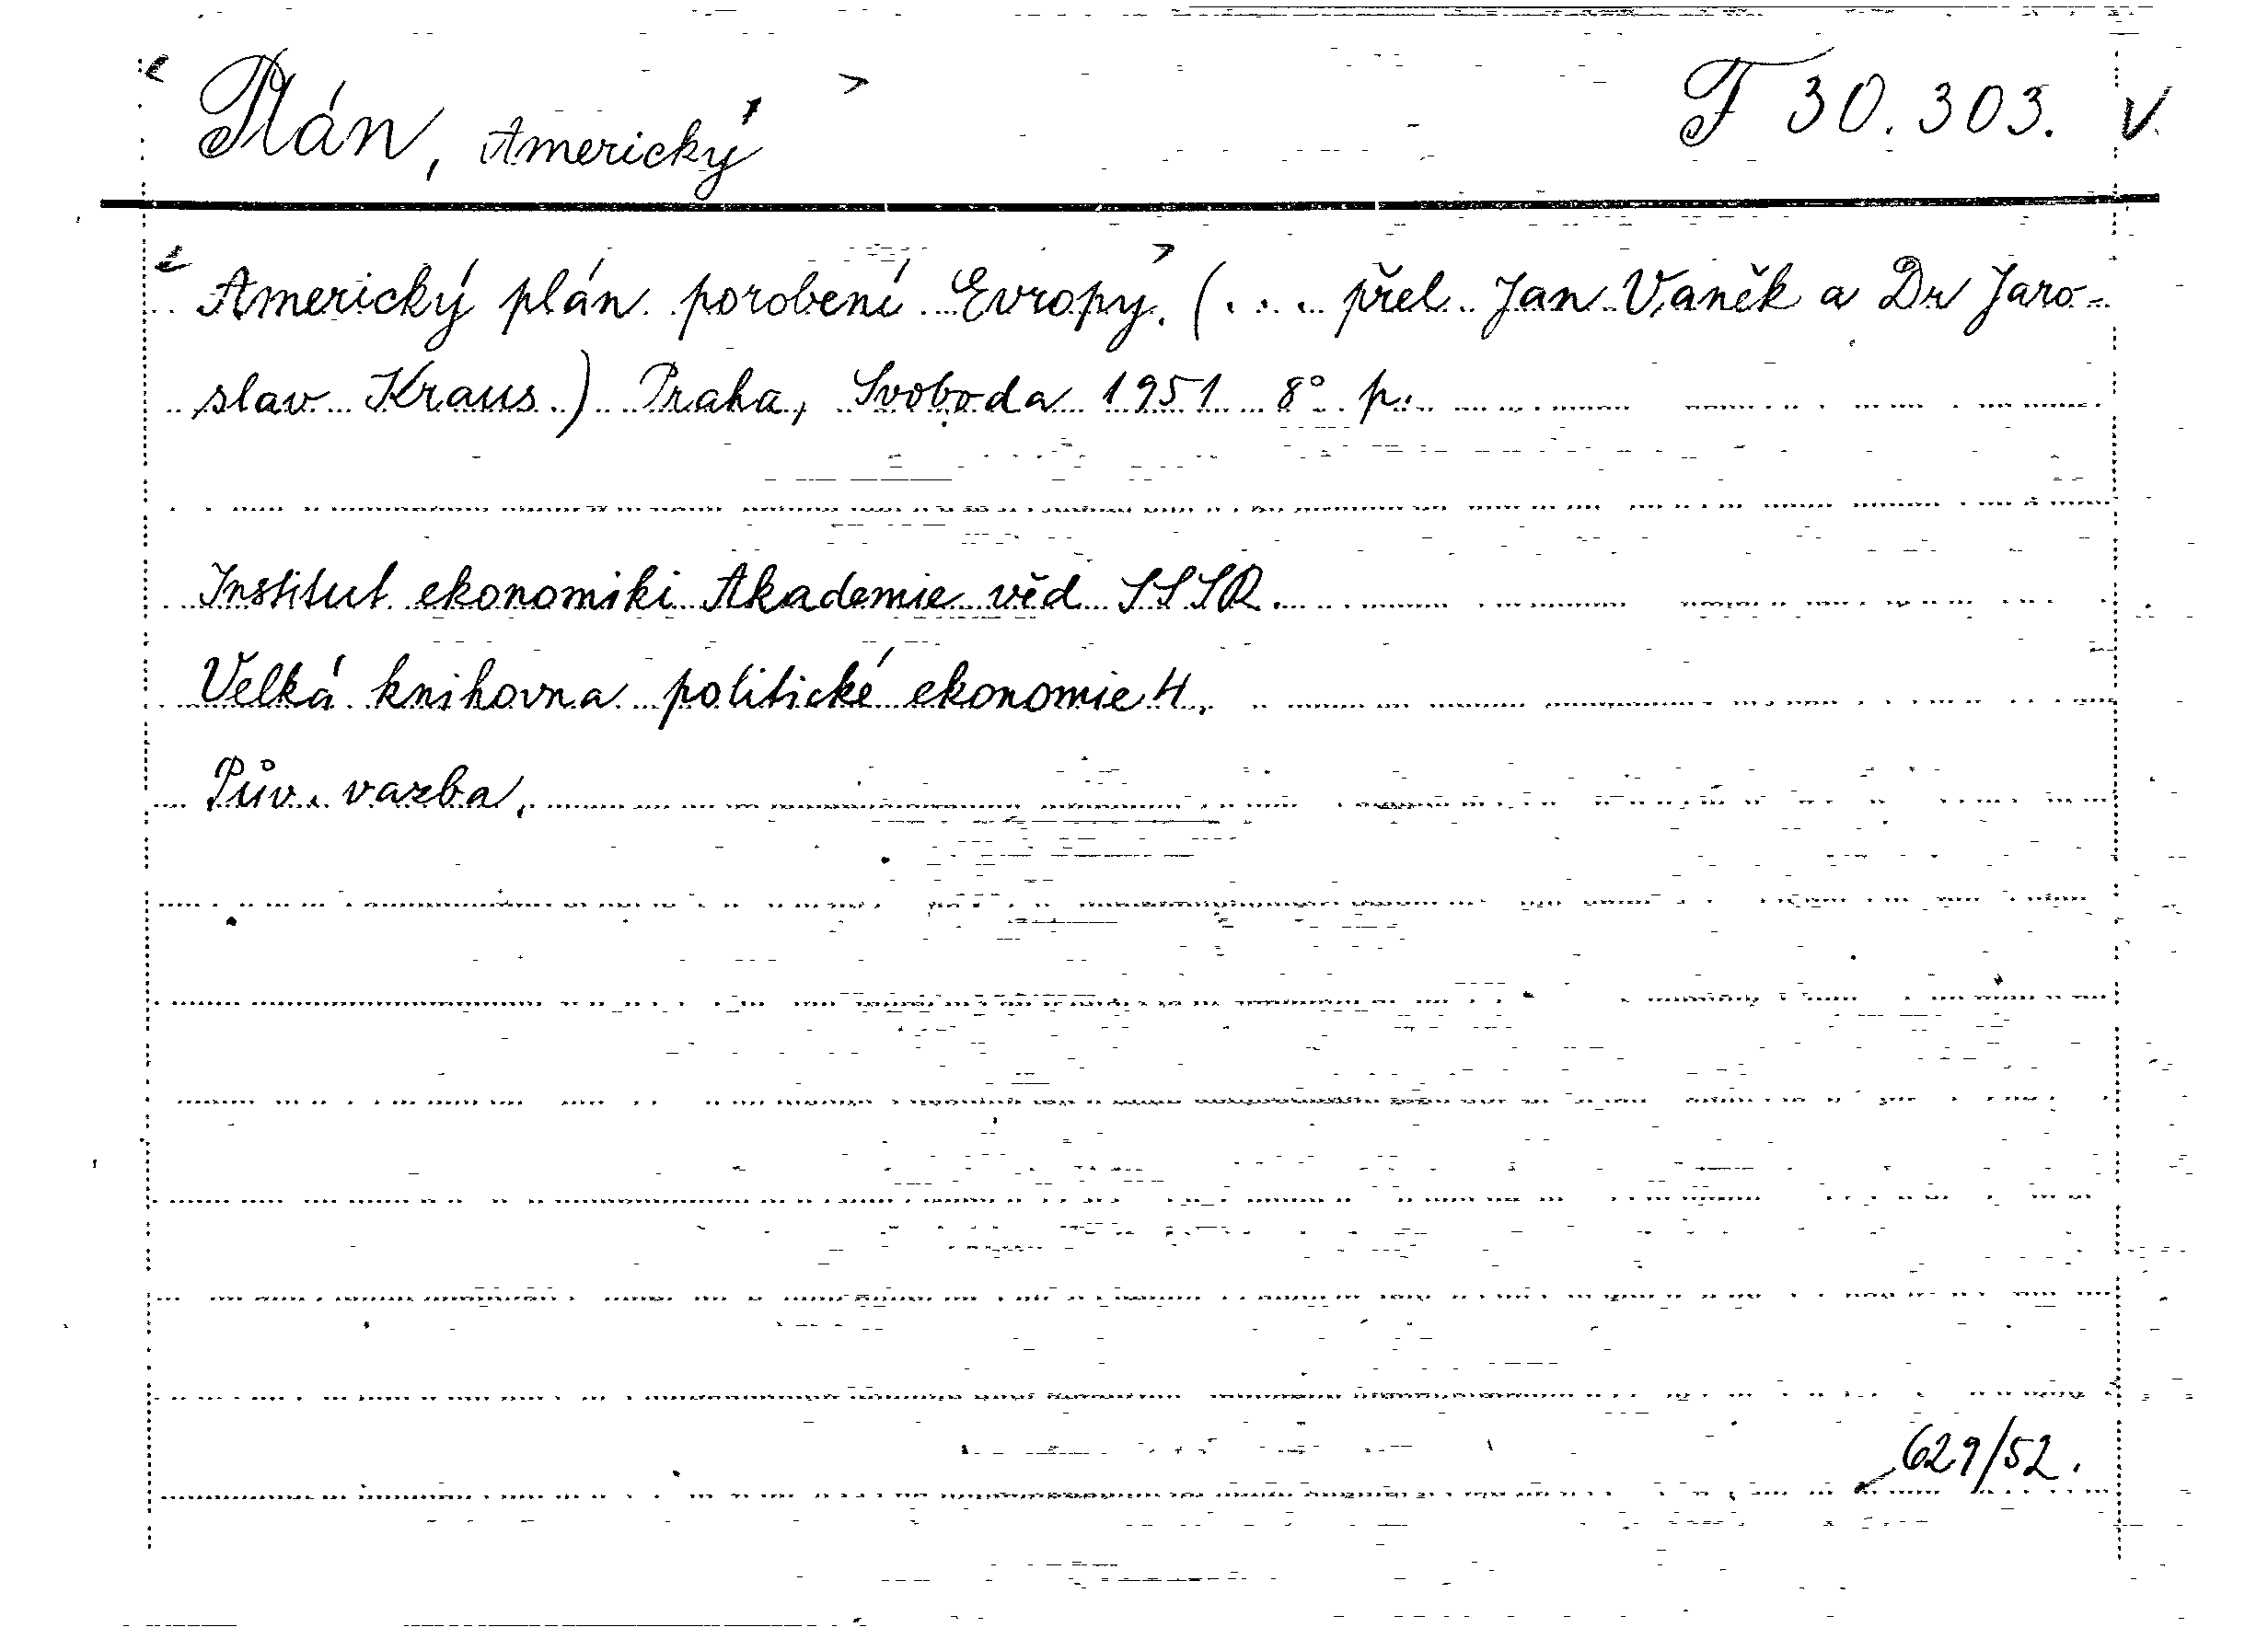 < Plán, Americký > F 30.303. V.
< Americký plán porobení Evropy.> (... přel. Jan Vaněk a Dr Jaro-
slav Kraus.) Praha, Svoboda 1951 8° p.
Institut ekonomiki Akademie věd SSSR.
Velká knihovna politické ekonomie 4.
Pův. vazba.
629/52.